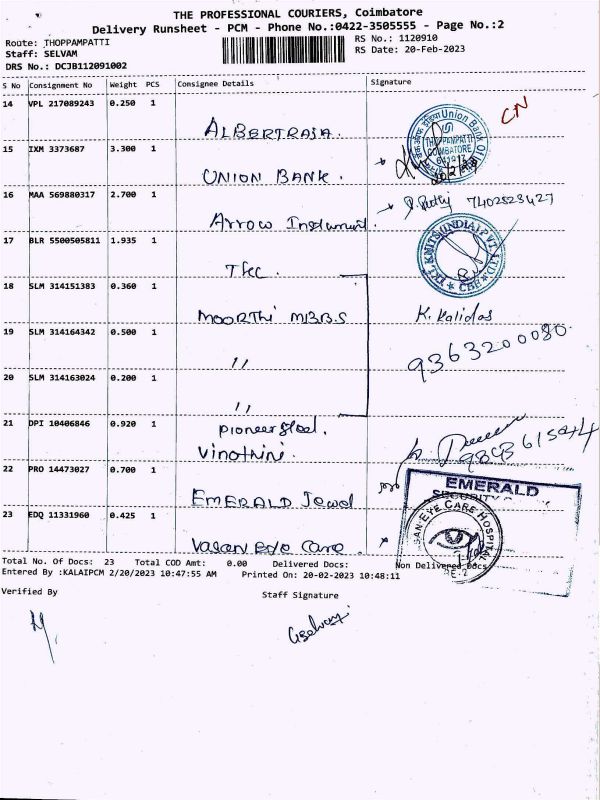 THE PROFESSIONAL COURIERS, Coimbatore
Delivery Runsheet - PCM - Phone No.:0422-3505555 - Page No.:2
Route: THOPPAMPATTI RS No.: 1120910
Staff: SELVAM RS Date: 20-Feb-2023
DRS No.: DCJB112091002
S No Consignment No Weight PCS Consignee Details Signature
14 VPL 217089243 0.250 1
ALBERTRAJA. CN
15 IXM 3373687 3.300 1
UNION BANK. Union Bank Of THOPPAMPATTI COIMBATORE
16 MAA 569880317 2.700 1
Arrow Instrument. 7402523427
17 BLR 5500505811 1.935 1
KNITS (INDIA) PVT. LTD. CBE
18 SLM 314151383 0.360 1
MOORTHI M.B.B.S K. Kalidas
19 SLM 314164342 0.500 1
" 9363200080
20 SLM 314163024 0.200 1
"
21 DPI 10406846 0.920 1
Pioneer Steel.
Vinothini.
22 PRO 14473027 0.700 1
EMERALD Jewel EMERALD
SECURITY
23 EDQ 11331960 0.425 1
Vasan Eye Care. SAN EYE CARE HOSPITAL
Total No. Of Docs: 23 Total COD Amt: 0.00 Delivered Docs: Non Delivered Docs
Entered By :KALAIPCM 2/20/2023 10:47:55 AM Printed On: 20-02-2023 10:48:11
Verified By Staff Signature